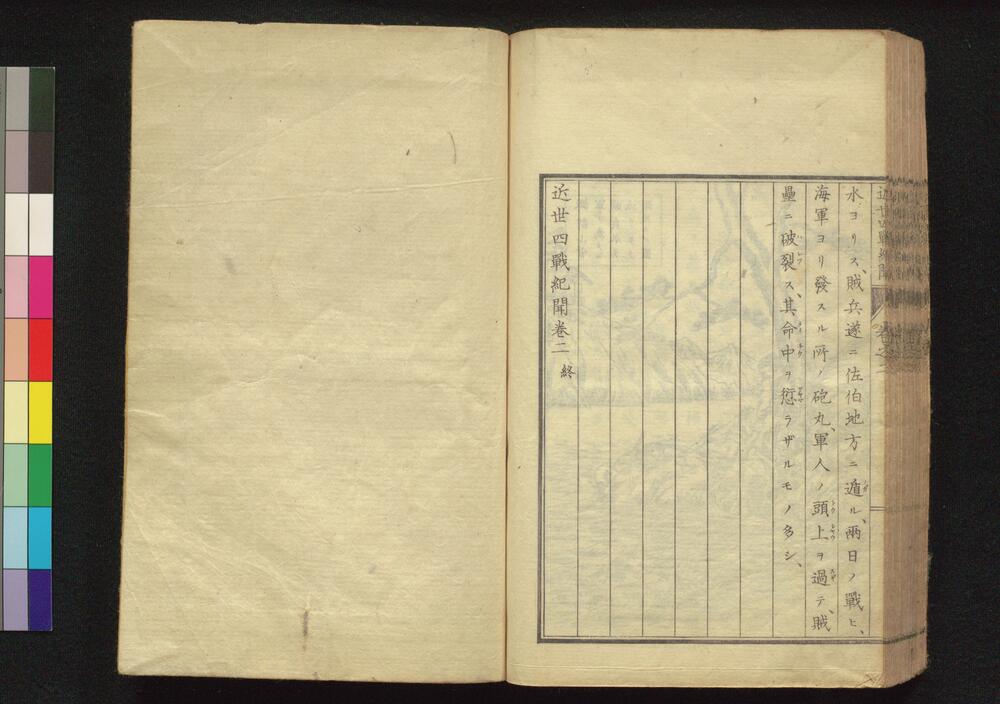 水ヨリス、賊兵遂ニ佐伯地方ニ遁ル、兩日ノ戰ヒ、
海軍ヨリ發スル所ノ砲丸、軍人ノ頭上ヲ過テ、賊
壘ニ破裂ス、其命中ヲ愆ラザルモノ多シ、
近世四戰紀聞卷二 終